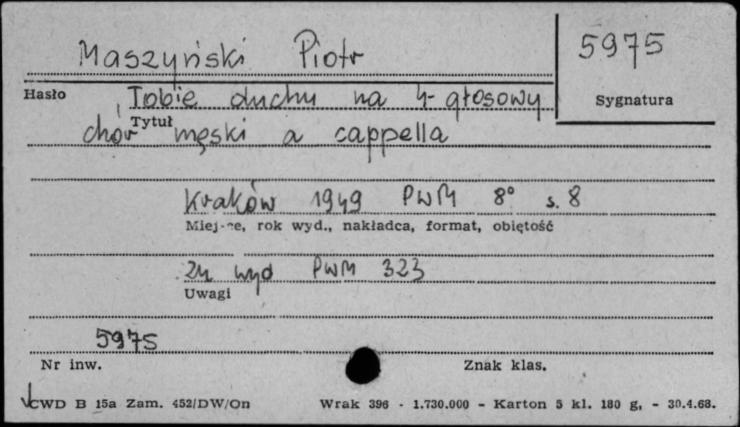 Maszyński Piotr
5975
Hasło
Sygnatura
Tobie duchu na 4-głosowy
Tytuł
chór męski a cappella
Kraków 1949 PWM 8° s. 8
Miejsce, rok wyd., nakładca, format, objętość
Zn wyd PWM 323
Uwagi
5975
Nr inw.
Znak klas.
CWD B 15a Zam. 452/DW/On
Wrak 396 - 1.730.000 - Karton 5 kl. 180 g, - 30.4.68.